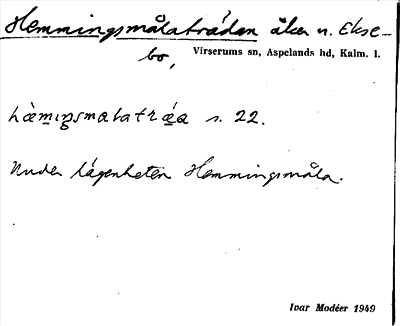 Hemmingsmålatrådan åker n. Ekse-
bo,
Virserums sn, Aspelands hd, Kalm. l.
s. 22.
Under lägenheten Hemmingsmåla.
Ivar Modéer 1949